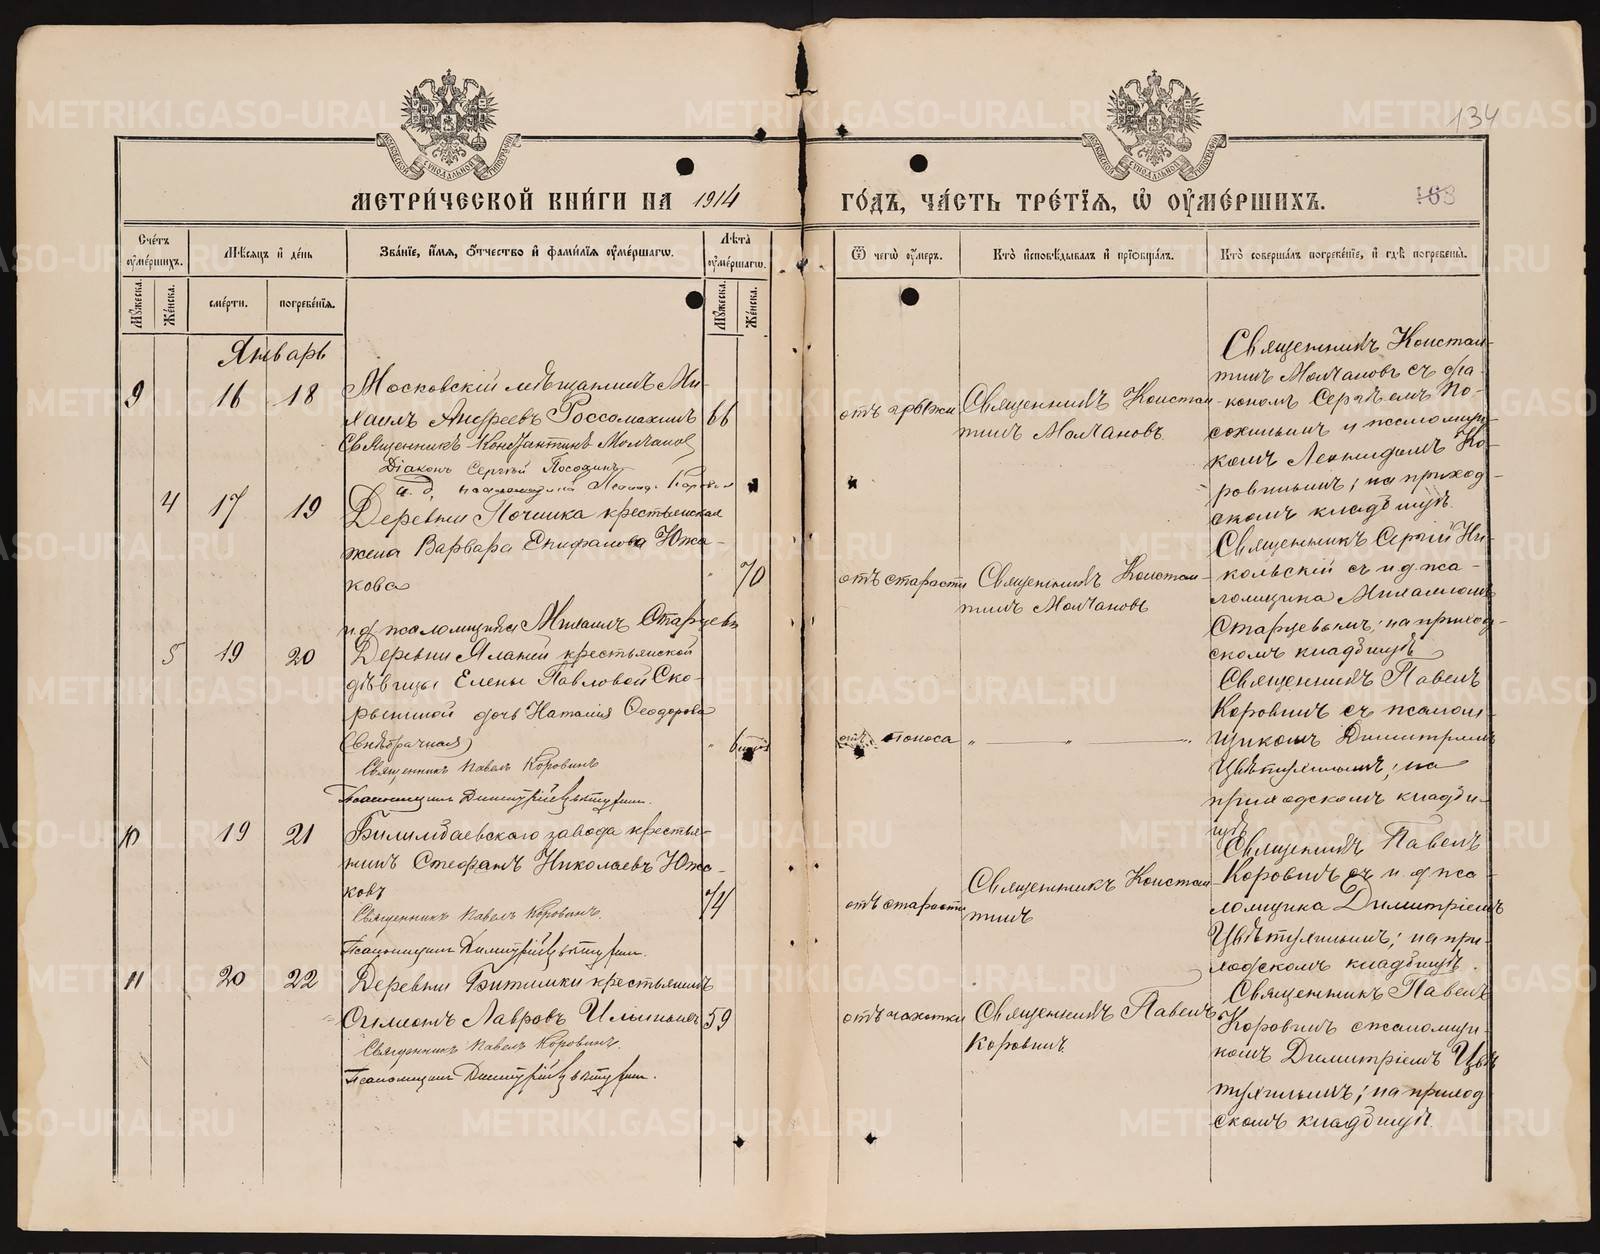 134
МЕТРИ́ЧЕСКОЙ КНИ́ГИ НА 1914
ГО́ДЪ, ЧА́СТЬ ТРЕ́ТІѦ, Ѡ҆ ОУ҆МЕ́РШИХЪ.
103
Сче́тъ оу҆ме́ршихъ.
Мꙋ́жеска.
Же́нска.
Мѣ́сѧцъ и҆ де́нь
сме́рти.
погребе́нїѧ.
Зва́нїе, и҆́мѧ, ѻ҆́тчество и҆ фамы́лїѧ оу҆ме́ршагѡ.
Лѣ́та оу҆ме́ршагѡ.
Мꙋ́жеска.
Же́нска.
Ѿ чегѡ̀ оу҆́меръ.
Кто̀ и҆сповѣ́дывалъ и҆ прїѡбща́лъ.
Кто̀ соверша́лъ погребе́нїе, и҆ гдѣ̀ погребены̀.
Январь
9
16
18
Московскій мѣщанинъ Ми-
хаилъ Андреевъ Россомахинъ
66
Священникъ Константинъ Молчанов
Діаконъ Сергѣй Посохинъ
и. д. псаломщика Леонид. Коровин
отъ грыжи
Священникъ Констан-
тинъ Молчановъ.
Священникъ Констан-
тинъ Молчановъ съ діа-
кономъ Сергѣемъ По-
сохинымъ и псаломщи-
комъ Леонидомъ Ко-
ровинымъ; на приход-
скомъ кладбищѣ.
4
17
19
Деревни Починка крестьянская
жена Варвара Епифанова Южа-
кова
70
и.д псаломщика Михаилъ Старцевъ
отъ старости
Священникъ Констан-
тинъ Молчановъ
Священникъ Сергій Ни-
кольскій съ и.д. пса-
ломщика Михаиломъ
Старцевымъ; на приход-
скомъ кладбищѣ
5
19
20
Деревни Яланки крестьянской
дѣвицы Елены Павловой Ско-
рыниной дочь Наталія Ѳеодорова
(внѣбрачная)
Священникъ Павелъ Коровинъ
Псаломщикъ Димитрій Цвѣтухин.
отъ поноса
„ — „ — „
Священникъ Павелъ
Коровинъ съ псалом-
щикомъ Димитріемъ
Цвѣтухинымъ; на
приходскомъ кладби-
щѣ
10
19
21
Билимбаевскаго завода крестья-
нинъ Стефанъ Николаевъ Южа-
ковъ
74
Священникъ Павелъ Коровинъ.
Псаломщикъ Димитрій Цвѣтухин.
отъ старости
Священникъ Констан-
тинъ
Священникъ Павелъ
Коровинъ съ и. д пса-
ломщика Димитріемъ
Цвѣтухинымъ; на при-
ходскомъ кладбищѣ.
11
20
22
Деревни Битимки крестьянинъ
Филиппъ Лавровъ Ильиныхъ
59
Священникъ Павелъ Коровинъ.
Псаломщикъ Димитрій Цвѣтухин.
отъ чахотки
Священникъ Павелъ
Коровинъ
Священникъ Павелъ
Коровинъ съ псаломщи-
комъ Димитріемъ Цвѣ-
тухинымъ; на приход-
скомъ кладбищѣ.
METRIKI.GASO-URAL.RU